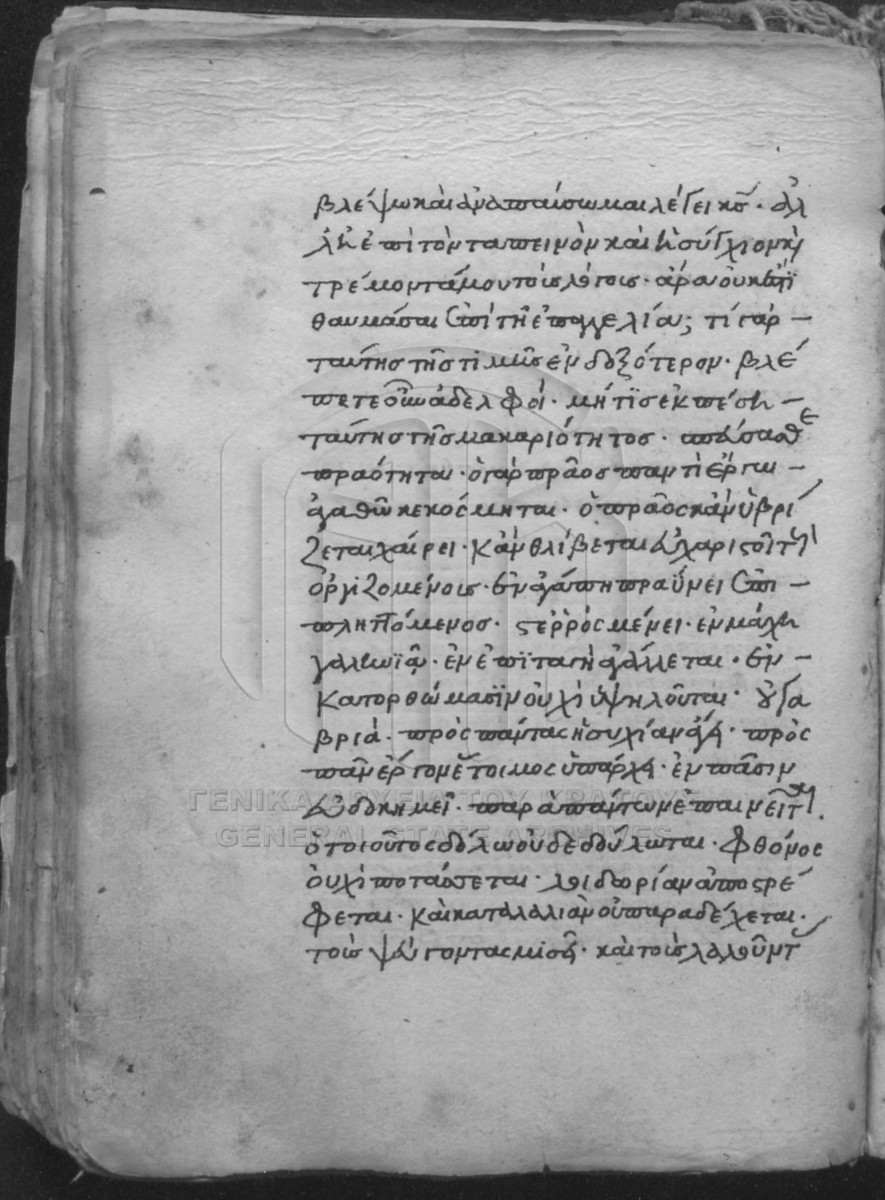 βλέψω καὶ ἀναπαύσωμαι λέγει κς̄· ἀλ
λ' ἢ ἐπὶ τὸν ταπεινὸν καὶ ἡσύχιον κ(αὶ)
τρέμοντά μου τοὺς λόγους· ἆρα οὐκ ἔστι
θαυμάσαι ἐπὶ τῆ ἐπαγγελία; τί γὰρ –
ταύτης τῆς τιμῆς ἐνδοξότερον· βλέ
πετε οὖν ἀδελφοί· μή τϊς ἐκπέση –
ταύτης τῆς μακαριότητος·
πραότητα· ὁ γὰρ πρᾶος παντὶ ἔργω –
ἀγαθῶ κεκόσμηται· ὁ πρᾶος κἂν ὑβρί
ζεται χαίρει· κἂν θλίβεται εὐχαριστεῖ τ(οὺς)
ὀργιζομένοις· ἐν ἀγάπη πραΰνει ἐπι –
πληττόμενος· στερρὸς μένει· ἐν μάχη
γαληνιᾶ· ἐν ἐπϊταγῆ ἀγάλλεται· ἐν –
κατορθώμασϊν οὐχ ὑψηλοῦται· οὐ γα
βριᾶ· πρὸς πάντας ἡσυχίαν ἄγει· πρὸς
πᾶν ἔργον ἕτοιμος ὑπάρχει· ἐν πᾶσιν
εὐδοκιμεῖ· παρὰ πάντων ἐπαινεῖται·
ὁ τοιοῦτος δόλω οὐ δεδούλωται· φθόνος
οὐχ ὑποτάσσεται· λοιδορίαν ἀποστρέ
φεται· καὶ καταλαλιὰν οὐ παραδέχεται·
τοὺς ψεύγοντας μισεῖ· καὶ τοὺς λαλοῦντ(ας)
ΓΕΝΙΚΑ ΑΡΧΕΙΑ ΤΟΥ ΚΡΑΤΟΥΣ
GENERAL STATE ARCHIVES